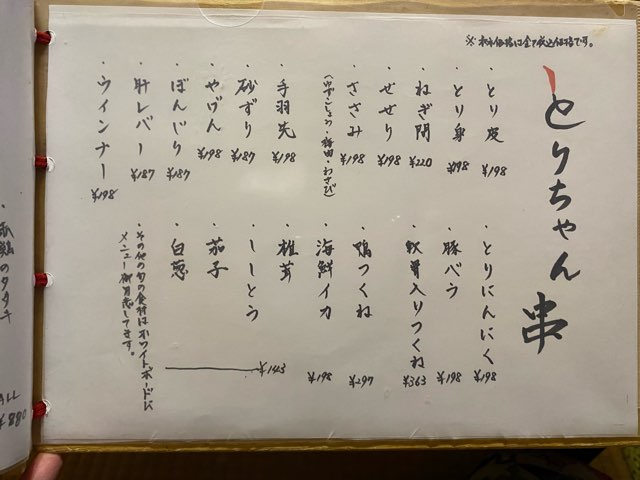 ※ 表示価格は全て税込価格です。
とりちゃん串
・とり皮 ¥198
・とり身 ¥198
・ねぎ間 ¥220
・せせり ¥198
・ささみ ¥198
(ゆずこしょう・梅肉・わさび)
・手羽先 ¥198
・砂ずり ¥187
・やげん ¥198
・ぼんじり ¥187
・肝レバー ¥187
・ウインナー ¥198
・とりにんにく ¥198
・豚バラ ¥198
・軟骨入りつくね ¥363
・鴨つくね ¥297
・海鮮イカ ¥198
・椎茸
・ししとう
・茄子
・白葱
¥143
・その他の旬の食材はホワイトボードに
メニュー御用意してます。
鶏のタタキ
ALL
¥880